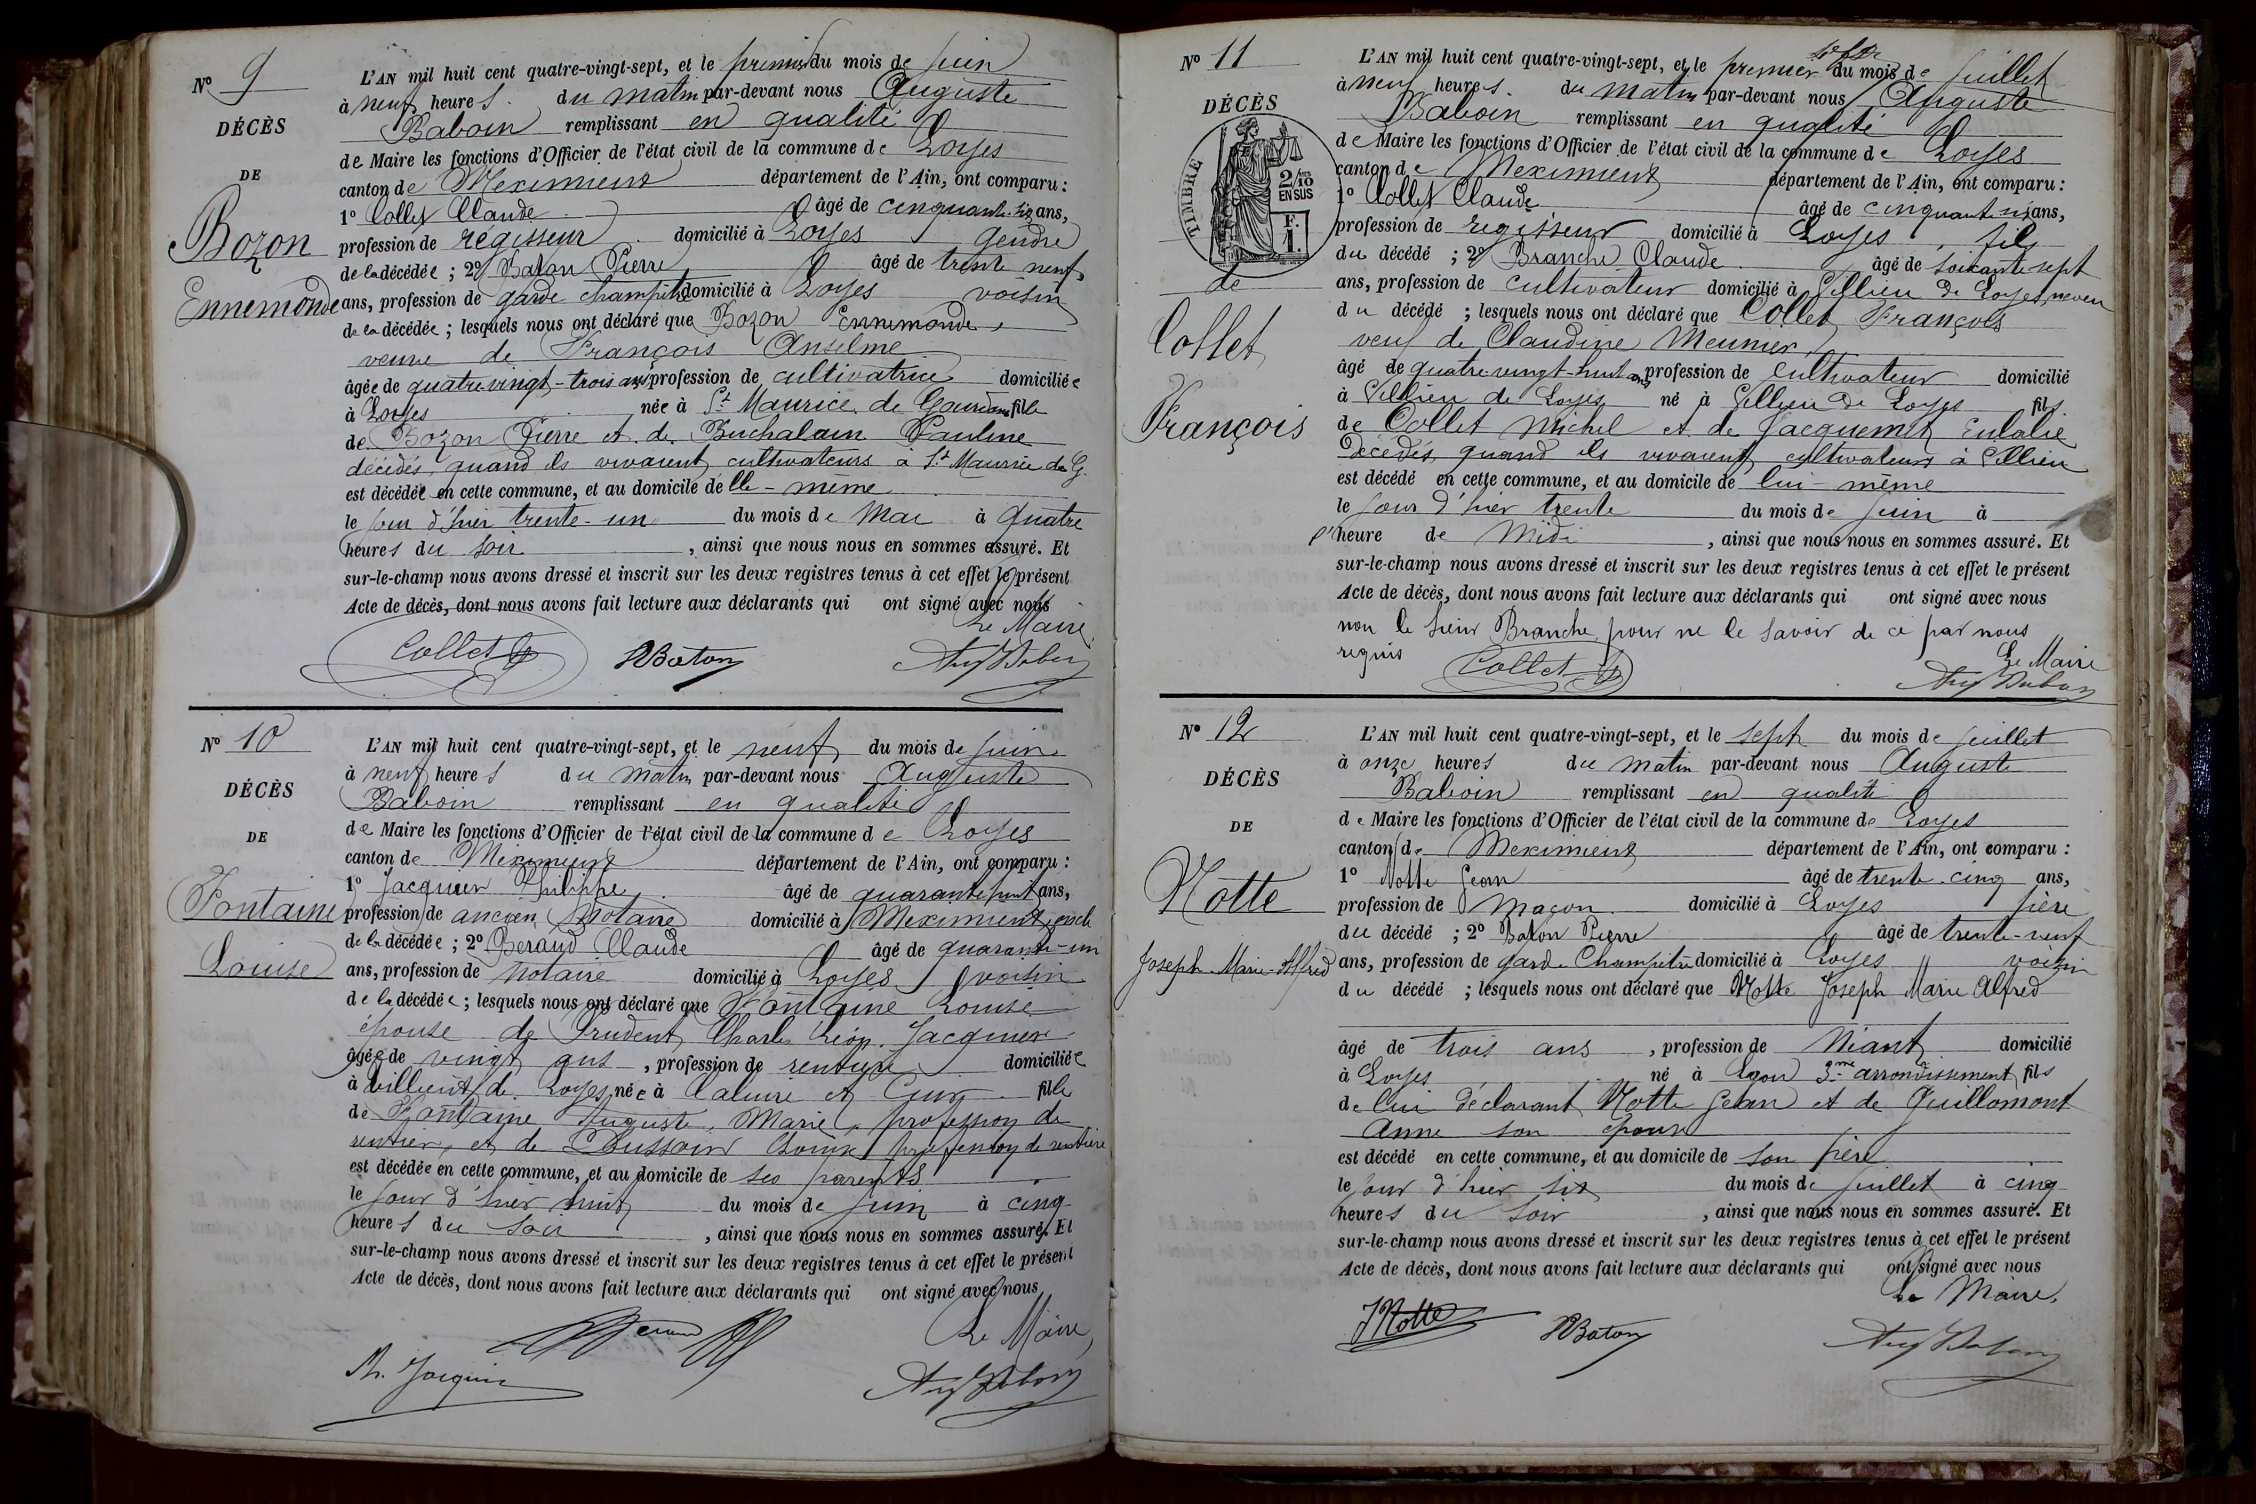 N° 9
DÉCÈS
DE
Bozon
Ennemonde
L'AN mil huit cent quatre-vingt-sept, et le premier du mois de juin
à neuf heures du matin par-devant nous Auguste
Baboin remplissant en qualité
de Maire les fonctions d'Officier de l'état civil de la commune de Loyes
canton de Meximieux département de l'Ain, ont comparu :
1° Collet Claude âgé de cinquante-six ans,
profession de régisseur domicilié à Loyes gendre
de la décédée ; 2° Baton Pierre âgé de trente neuf
ans, profession de garde champêtre domicilié à Loyes voisin
de la décédée ; lesquels nous ont déclaré que Bozon Ennemonde,
veuve de François Anselme
âgée de quatre-vingt-trois ans profession de cultivatrice domiciliée
à Loyes née à St Maurice de Gourdans fille
de Bozon Pierre et de Buchalain Pauline
décédés quand ils vivaient cultivateurs à St Maurice de G.
est décédée en cette commune, et au domicile de lle-même
le jour d'hier trente-un du mois de Mai à quatre
heures du soir, ainsi que nous nous en sommes assuré. Et
sur-le-champ nous avons dressé et inscrit sur les deux registres tenus à cet effet le présent
Acte de décès, dont nous avons fait lecture aux déclarants qui ont signé avec nous
Le Maire
Collet PBaton Aug Baboin
N° 10
DÉCÈS
DE
Fontaine
Louise
L'AN mil huit cent quatre-vingt-sept, et le neuf du mois de juin
à neuf heures du matin par-devant nous Auguste
Baboin remplissant en qualité
de Maire les fonctions d'Officier de l'état civil de la commune de Loyes
canton de Meximieux département de l'Ain, ont comparu :
1° Jacquier Philippe âgé de quarante huit ans,
profession de ancien Notaire domicilié à Meximieux, oncle
de la décédée ; 2° Beraud Claude âgé de quarante-un
ans, profession de notaire domicilié à Loyes voisin
de la décédée ; lesquels nous ont déclaré que Fontaine Louise
épouse de Prudent Charles Léon Jacquier
âgée de vingt ans, profession de rentière domiciliée
à Villieux de Loyes née à Caluire et Cuire fille
de Fontaine Auguste, Marie, profession de
rentier, et de Louise profession de rentière
est décédée en cette commune, et au domicile de ses parents
le jour d'hier huit du mois de juin à cinq
heures du soir, ainsi que nous nous en sommes assuré. Et
sur-le-champ nous avons dressé et inscrit sur les deux registres tenus à cet effet le présent
Acte de décès, dont nous avons fait lecture aux déclarants qui ont signé avec nous
Le Maire,
Ph. Jacquier Beraud Aug Baboin
N° 11
DÉCÈS
TIMBRE
2/10
EN SUS
F.
1.
de
Collet
François
L'AN mil huit cent quatre-vingt-sept, et le premier du mois de juillet
à neuf heures du matin par-devant nous Auguste
Baboin remplissant en qualité
de Maire les fonctions d'Officier de l'état civil de la commune de Loyes
canton de Meximieux département de l'Ain, ont comparu :
1° Collet Claude âgé de cinquante six ans,
profession de régisseur domicilié à Loyes, fils
du décédé ; 2° Branche Claude âgé de soixante-sept
ans, profession de cultivateur domicilié à Villieu de Loyes, neveu
du décédé ; lesquels nous ont déclaré que Collet François
veuf de Claudine Meunier,
âgé de quatre-vingt-huit ans profession de cultivateur domicilié
à Villieu de Loyes né à Villieu de Loyes fils
de Collet Michel et de Jacquemet Eulalie
Décédés quand ils vivaient cultivateurs à Villieu
est décédé en cette commune, et au domicile de lui-même
le jour d'hier trente du mois de juin à
l'heure de Midi, ainsi que nous nous en sommes assuré. Et
sur-le-champ nous avons dressé et inscrit sur les deux registres tenus à cet effet le présent
Acte de décès, dont nous avons fait lecture aux déclarants qui ont signé avec nous
non le sieur Branche pour ne le savoir de ce par nous
requis
Le Maire
Collet Aug Baboin
N° 12
DÉCÈS
DE
Notte
Joseph-Marie-Alfred
L'AN mil huit cent quatre-vingt-sept, et le sept du mois de juillet
à onze heures du matin par-devant nous Auguste
Baboin remplissant en qualité
de Maire les fonctions d'Officier de l'état civil de la commune de Loyes
canton de Meximieux département de l'Ain, ont comparu :
1° Notte Jean âgé de trente-cinq ans,
profession de Maçon domicilié à Loyes père
du décédé ; 2° Baton Pierre âgé de trente-neuf
ans, profession de garde Champêtre domicilié à Loyes voisin
du décédé ; lesquels nous ont déclaré que Notte Joseph Marie Alfred
âgé de trois ans, profession de Néant domicilié
à Loyes né à Lyon 3me arrondissement fils
de lui déclarant Notte Jean et de Guillomont
Anne son épouse
est décédé en cette commune, et au domicile de son père
le jour d'hier six du mois de juillet à cinq
heures du soir, ainsi que nous nous en sommes assuré. Et
sur-le-champ nous avons dressé et inscrit sur les deux registres tenus à cet effet le présent
Acte de décès, dont nous avons fait lecture aux déclarants qui ont signé avec nous
Le Maire,
JNotte PBaton Aug Baboin